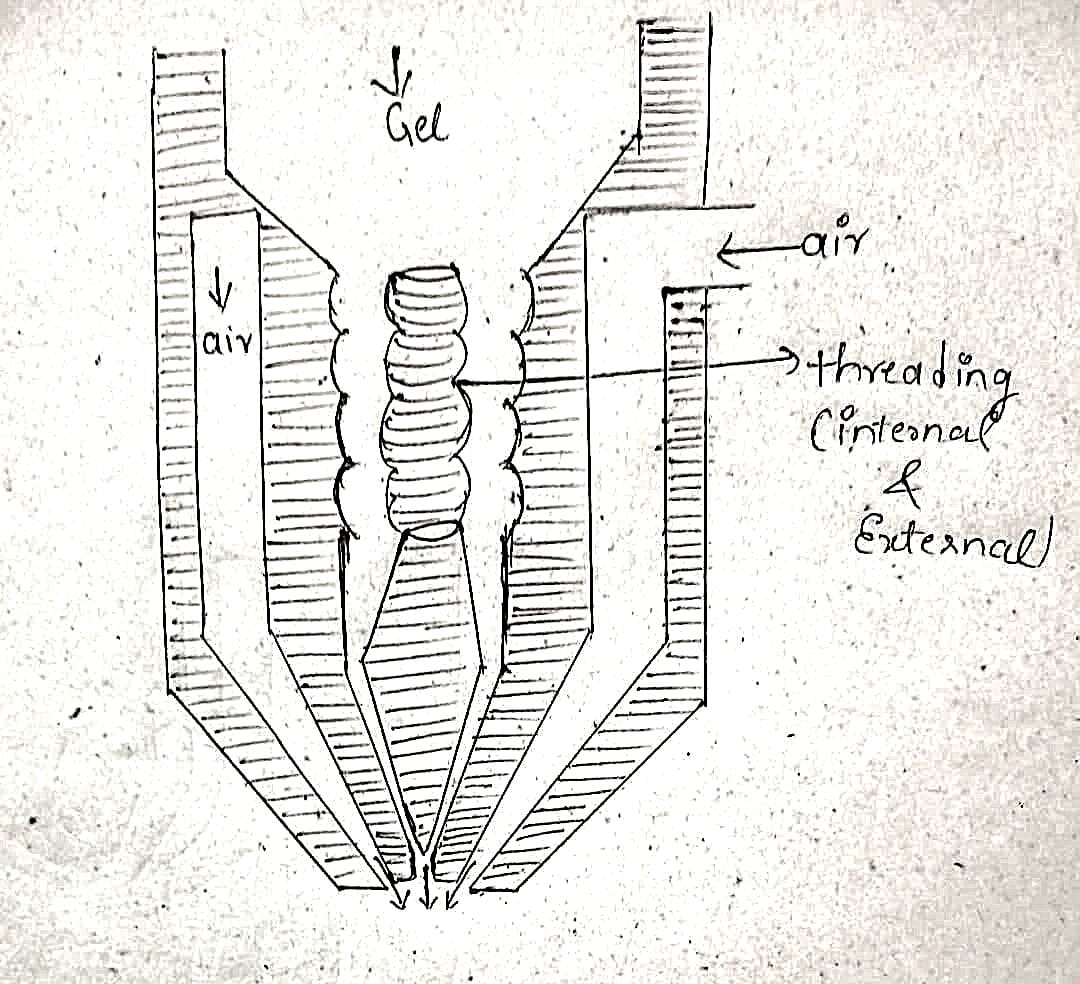 Gel
air
air
threading
(internal
&
External)